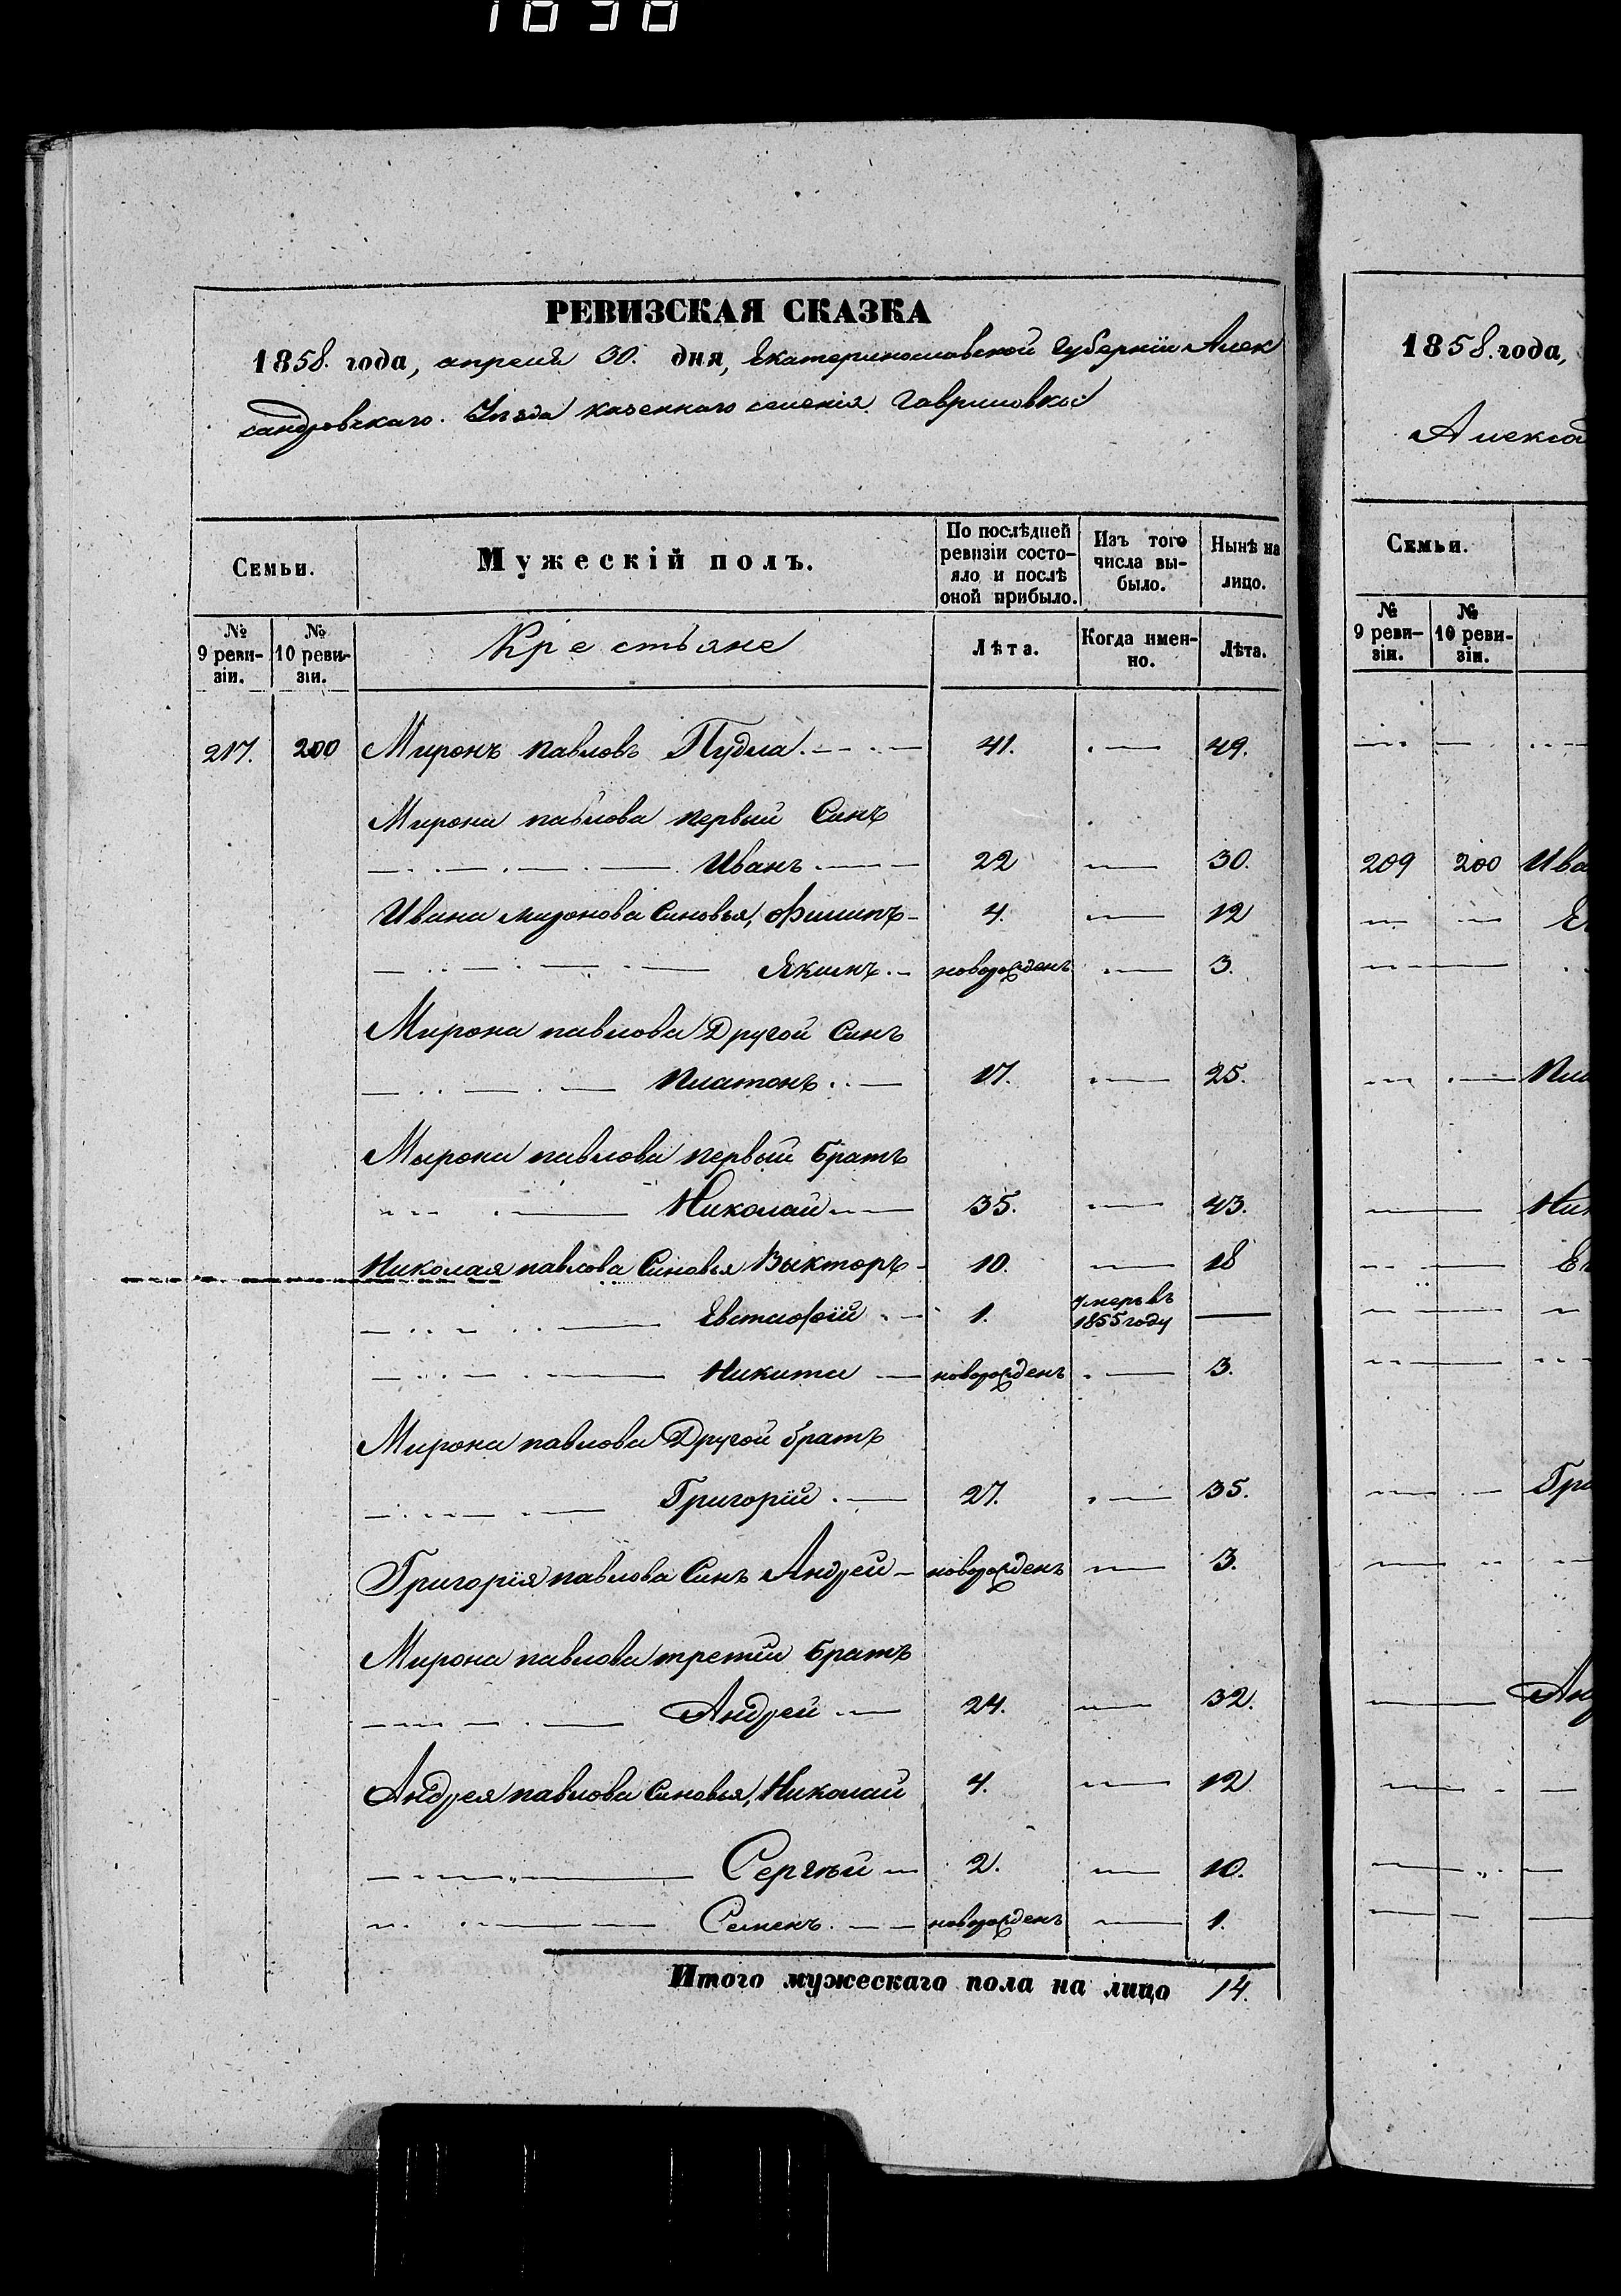 1858
РЕВИЗСКАЯ СКАЗКА
1858. года, апреля 30. дня, Екатеринославской Губернїи Алек
сандровскаго. Уезда казеннаго селенія Гавриловки
Семьи.
Мужескій полъ.
По послѣдней ревизіи состо-
яло и послѣ оной прибыло.
Изъ того числа вы-
было.
Нынѣ на лицо.
№ 9 реви-
зіи.
№ 10 реви-
зіи.
Крестьяне
Лѣта.
Когда имен-
но.
Лѣта.
217. 200 Миронъ павловъ Пудла. 41. — 49.
Мирона павлова первый Синъ
Иванъ 22 — 30.
Ивана миронова Синовья, Филипъ 4. — 12
Якимъ новорожденъ — 3.
Мирона павлова Другой Синъ
Платонъ 17. — 25.
Мырона павлова первый братъ
Николай 35. — 43.
Николая павлова Синовья Выкторъ 10. — 18
Евстафїй 1. умеръ въ 1855 году —
Никита новорожденъ — 3.
Мирона павлова Другой братъ
Григорїй 27. — 35.
Григорїя павлова Синъ Андрей новорожденъ — 3.
Мирона павлова третїй братъ
Андрей 24. — 32.
Андрея павлова Синовья, Николай 4. — 12
Сергѣй 2. — 10.
Семенъ новорожденъ — 1.
Итого мужескаго пола на лицо 14.
1858. года,
Алекса
Семьи.
№ 9 реви-
зіи.
№ 10 реви-
зіи.
209 200 Ива
Пла
Ник
Гри
Анд